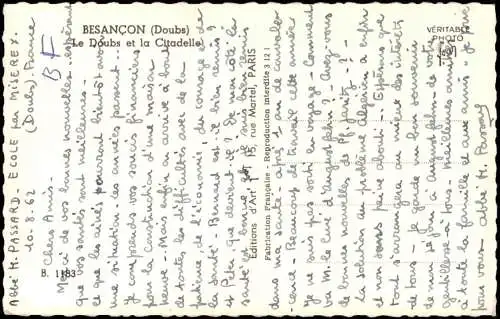 BESANÇON (Doubs)
Le Doubs et la Citadelle
VÉRITABLE
PHOTO
BF
Editions d'Art
15, rue Martel, PARIS
Fabrication Française - Reproduction interdite
B. 1183
Abbé M. PASSARD - ECOLE par MISEREY.
(Doubs). France
10.8.62
Chers Amis.
Merci de vos bonnes nouvelles. J'espère
que les santés sont meilleures.
ce que laissé pourront bientôt avoir
une situation : les années passent ...
Je comprends vos soucis financiers
pour la construction d'une maison
neuve. Mais enfin on arrive à bout
de toutes les difficultés avec de la
patience, de l'économie, du courage, de
la santé. Bernard est-il bien remis ?
et Peter que devient-il ? De mon côté la
santé est bonne, je suis bien
dans ma - pas
Beaucoup de travail cette année
Je ne suis pas sorti en voyage - Comment
va M. le Curé d'Augustphin ? - Avez-vous
de bonnes nouvelles de ?
La solution du problème Algérien a enfin
et non sans peine abouti. - Espérons que
tout s'arrangera au mieux des intérêts
de tous - Je garde un bon souvenir
de mon jour à Augustphin, de votre
gentillesse, et toutes meilleures amitiés
à toute la famille et aux amis - Je prie
pour vous - abbé M. Passard